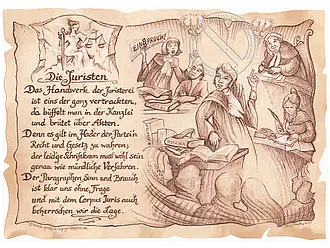 EINSPRUCH!
Die Juristen
Das Handwerk der Juristerei
ist eins der ganz vertrackten,
da büffelt man in der Kanzlei
und brütet über Akten.
Denn es gilt im Hader der Partein
Recht und Gesetz zu wahren;
der leidge Schriftkram muß wohl sein
genau wie mündliche Verfahren.
Der Paragraphen Sinn und Brauch
ist klar uns ohne Frage
und mit dem Corpus Juris auch
beherrschen wir die Lage.